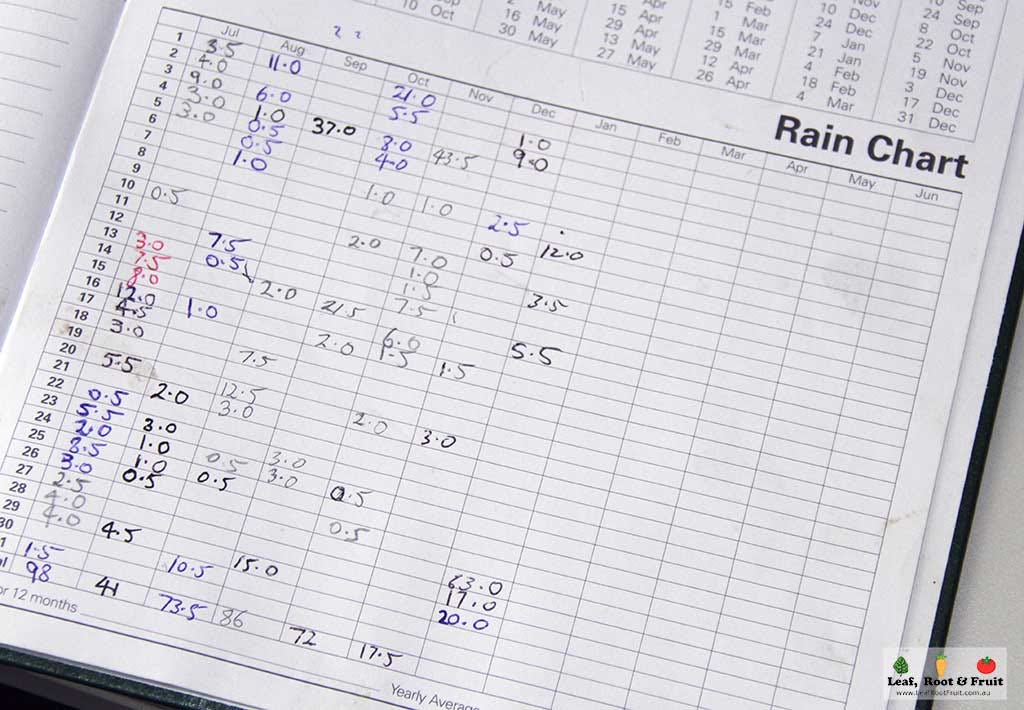 10 Oct
2 May
16 May
30 May
15 Apr
29 Apr
13 May
27 May
15 Feb
1 Mar
15 Mar
29 Mar
12 Apr
26 Apr
Nov
10 Dec
24 Dec
7 Jan
21 Jan
4 Feb
18 Feb
4 Mar
10 Sep
24 Sep
8 Oct
22 Oct
5 Nov
19 Nov
3 Dec
17 Dec
31 Dec
Rain Chart
Jul Aug Sep Oct Nov Dec Jan Feb Mar Apr May Jun
1 3.5 11.0 21.0
2 4.0 5.5 1.0
3 9.0 6.0 9.0
4 3.0 1.0 37.0 8.0 43.5
5 3.0 0.5 4.0
6 0.5
7 1.0 1.0 1.0 2.5
8 12.0
9 0.5
10 0.5 2.0 7.0
11 1.0 3.5
12 7.5 1.5
13 3.0 0.5 7.5
14 7.5 2.0 21.5 5.5
15 8.0 6.0
16 12.0 1.0 2.0 1.5 1.5
17 4.5
18 3.0 7.5
19
20 5.5 12.5 2.0 3.0
21 2.0 3.0
22 0.5
23 5.5 3.0 3.0
24 2.0 1.0 0.5 3.0 0.5
25 8.5 1.0 0.5
26 3.0 0.5 0.5
27 2.5 63.0
28 4.0 17.0
29 4.0 4.5 15.0 20.0
30 10.5
1 1.5
98 41 73.5 86 72 17.5
or 12 months
Yearly Average
Leaf, Root & Fruit
www.LeafRootFruit.com.au